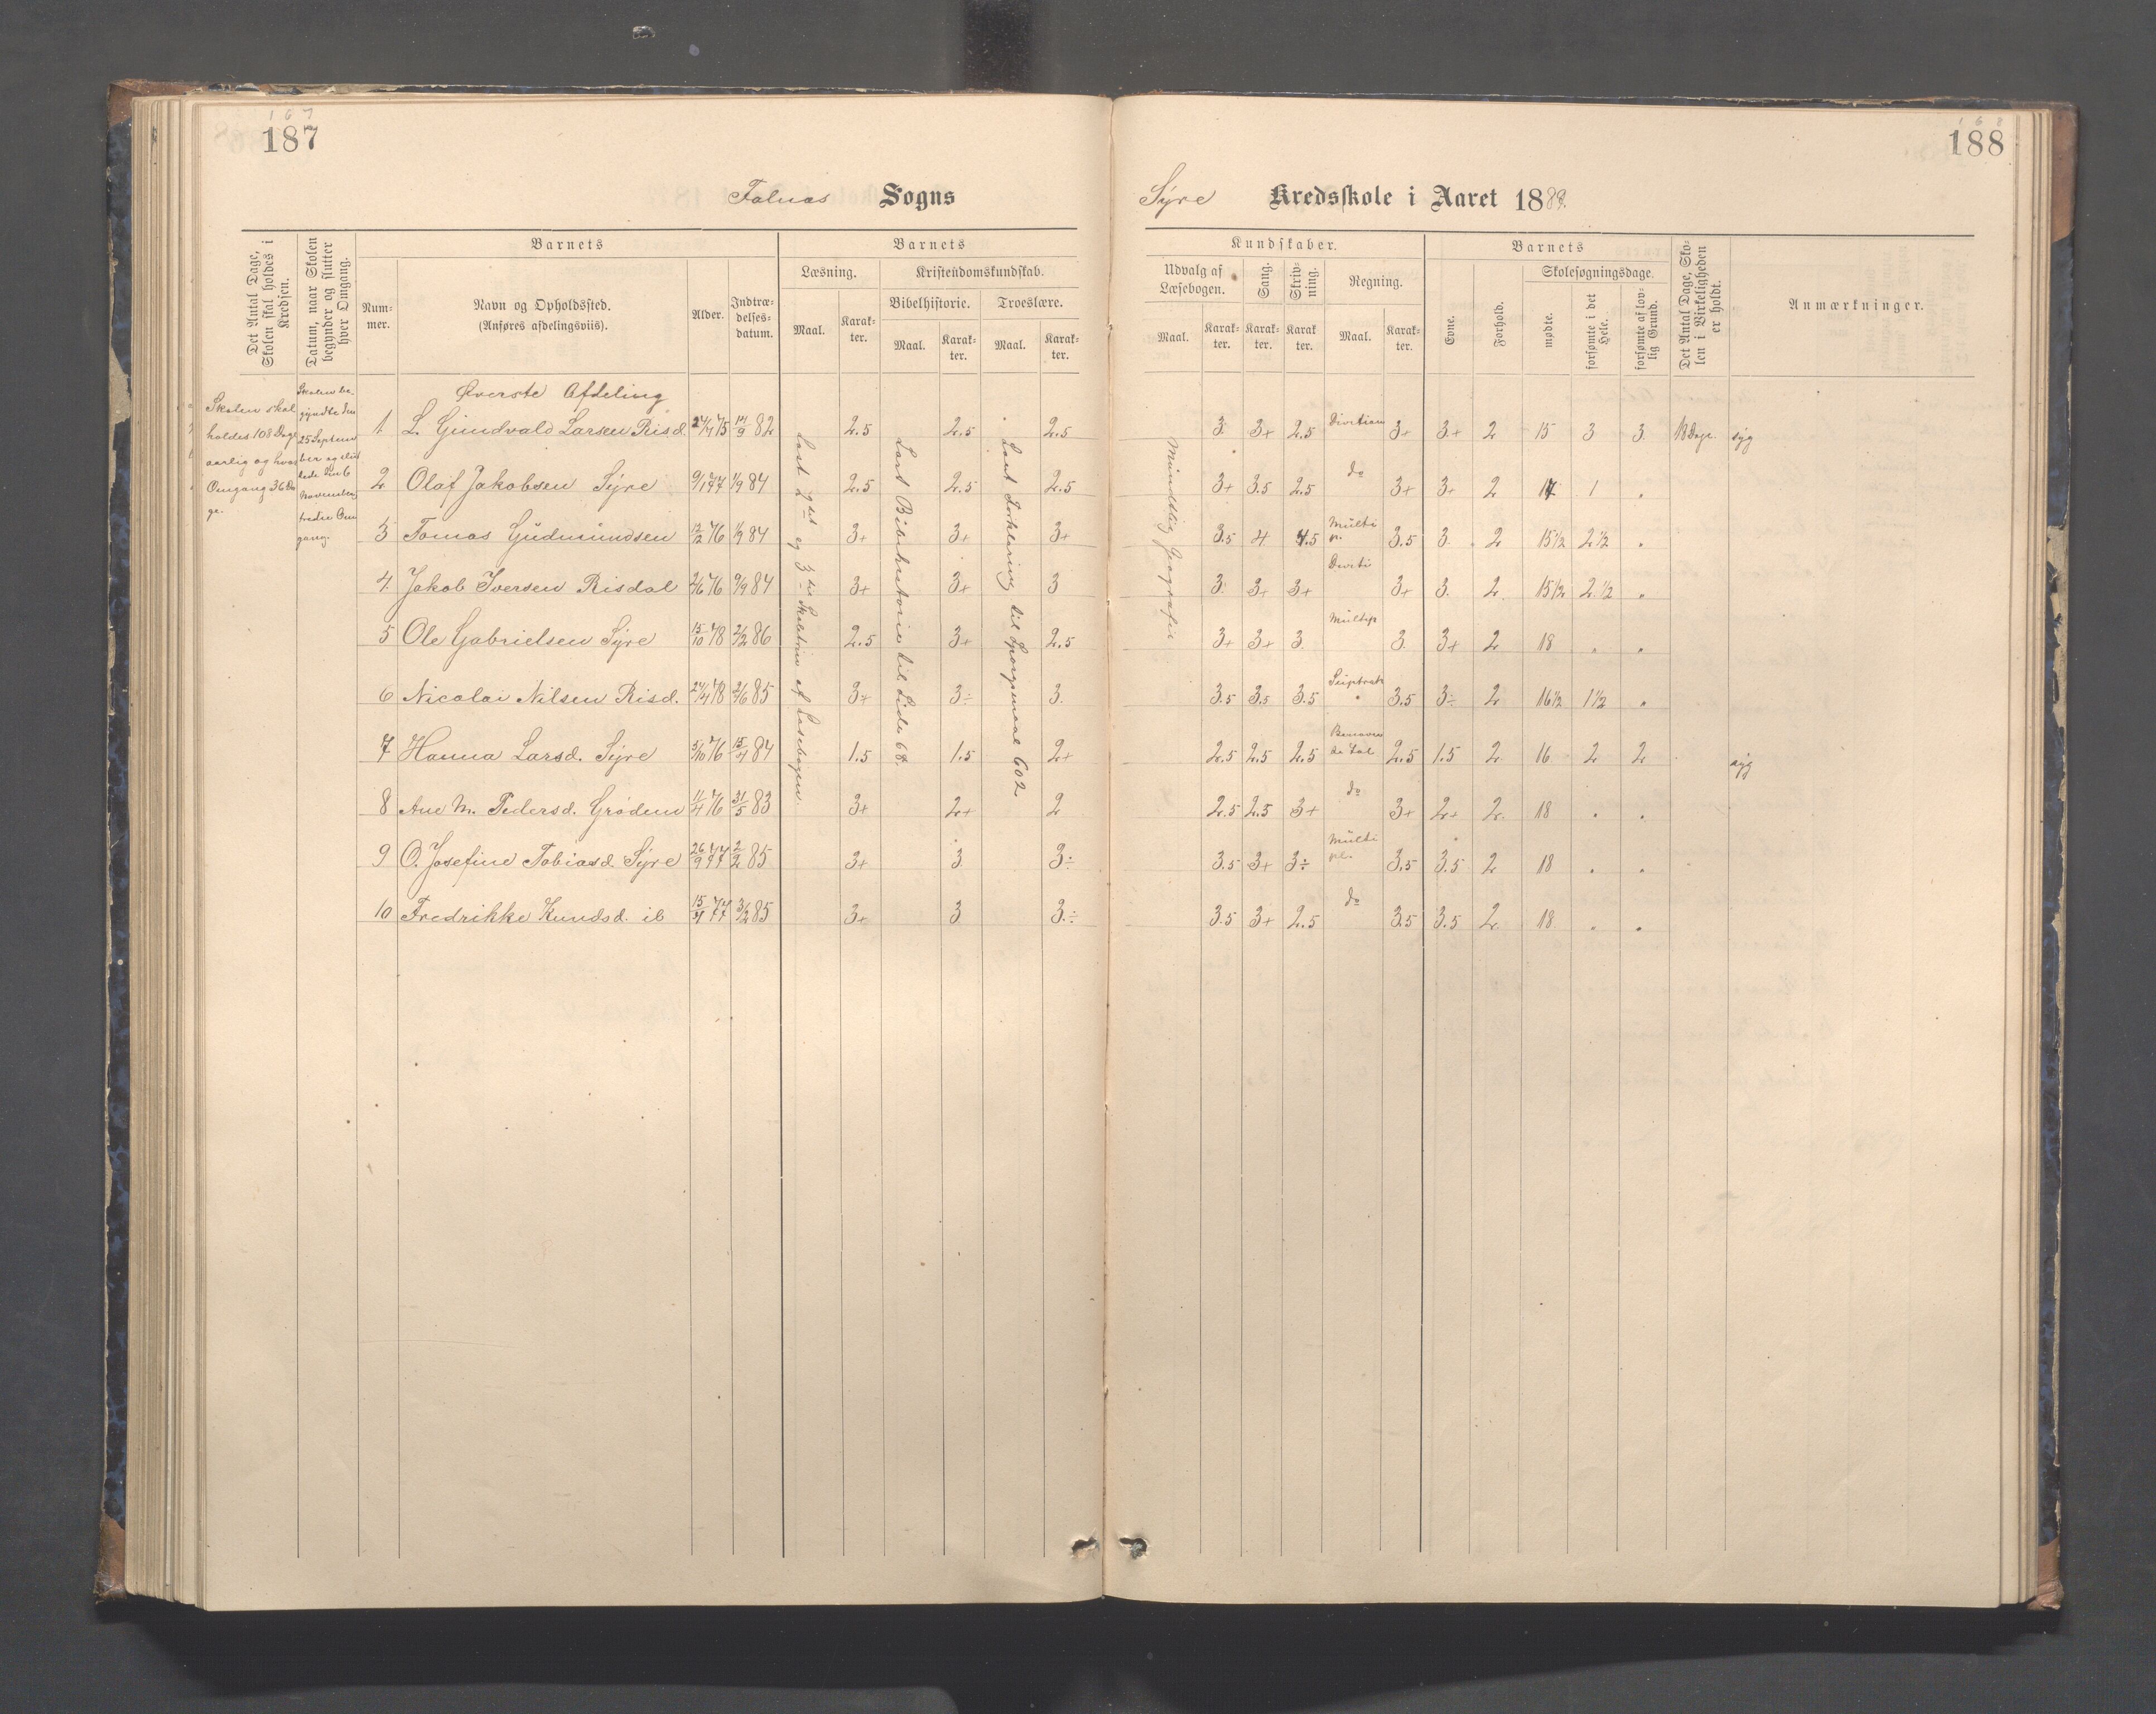 167
187
Falnes Sogns
Det Antal Dage, Skolen skal holdes i Kredsen.
Datum, naar Skolen begynder og slutter hver Omgang.
Barnets
Num-
mer.
Navn og Opholdssted.
(Anføres afdelingsviis).
Alder.
Indtræ-
delses-
datum.
Barnets
Læsning.
Kristendomskundskab.
Bibelhistorie.
Troeslære.
Maal.
Karak-
ter.
Maal.
Karak-
ter.
Maal.
Karak-
ter.
Skolen skal
holdes 108 Dage
aarlig og hver
Omgang 36 Da
ge.
Skolen be-
gyndte den
25 Septem
ber og slut
tede den 6
November,
tredie Om
gang.
Øverste Afdeling
1. L. Gundvald Larsen Risd. 24/4 75 14/9 82 2.5 2.5 2.5
2 Olaf Jakobsen Syre 9/1 77 1/9 84 2.5 2.5 2.5
3 Tomas Gudmundsen 12/2 76 1/9 84 3+ 3+ 3+
4. Jakob Iversen Risdal 2/6 76 9/9 84 3+ 3+ 3
5 Ole Gabrielsen Syre 15/10 78 2/2 86 2.5 3+ 2.5
6 Nicolai Nilsen Risd. 24/4 78 2/6 85 3+ 3÷ 3.
7 Hanna Larsd. Syre 5/10 76 15/4 84 1.5 1.5 2+
8 Ane M. Pedersd. Grødem 11/4 76 31/5 83 3+ 2+ 2
9 O. Josefine Tobiasd. Syre 26/9 77 2/2 85 3+ 3 3÷
10 Fredrikke Knudsd. ib 15/4 77 3/2 85 3+ 3 3.÷
Læst 2det og 3die Skoletrin af Læsebogen.
Lært Bibelhistorie til Side 68.
Lært Forklaring til Spørgsmaal 602
168
188
Syre Kredsskole i Aaret 1889.
Kundskaber.
Udvalg af
Læsebogen.
Sang.
Skriv-
ning.
Regning.
Maal.
Karak-
ter.
Karak-
ter.
Karak
ter.
Maal.
Karak-
ter.
Barnets
Evne.
Forhold.
Skolesøgningsdage.
mødte.
forsømte i det Hele.
forsømte af lov-
lig Grund.
Det Antal Dage, Sko-
len i Virkeligheden
er holdt.
Anmærkninger.
Mundtlig Geografi
3. 3+ 2.5 Division 3+ 3+ 2 15 3 3 18 Dage. syg
3+ 3.5 2.5 do 3+ 3+ 2 17 1 "
3.5 4 4.5 Multi
p. 3.5 3. 2 15½ 2½ "
3. 3+ 3+ Divisi 3+ 3. 2. 15½ 2.½ "
3+ 3+ 3 Multip 3. 3+ 2 18 " "
3.5 3.5 3.5 Suptrak 3.5 3÷ 2 16½ 1½ "
2.5 2.5 2.5 Benævn
te tal 2.5 1.5 2 16 2 2 syg
2.5 2.5 3+ do 3+ 2+ 2. 18 " "
3.5 3+ 3÷ Multi
pl. 3.5 3.5 2 18 " "
3.5 3+ 2.5 do 3.5 3.5 2. 18 " "